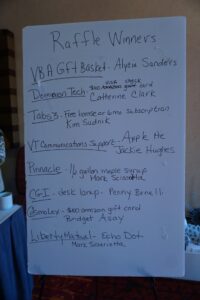 Raffle Winners
VBA Gift Basket - Alyssa Sanders
Dominion Tech - gift card
Catherine Clark
Tabs3 - Free home or 6mo subscription
Kim Sudnik
VT Communications Support - Apple
Jackie Hughes
Pinnacle - 1/2 gallon maple syrup
Mark
CGI - desk lamp - Penny Benelli
$100 amazon gift card
Bridget Asay
Liberty Mutual - Echo Dot
Mark